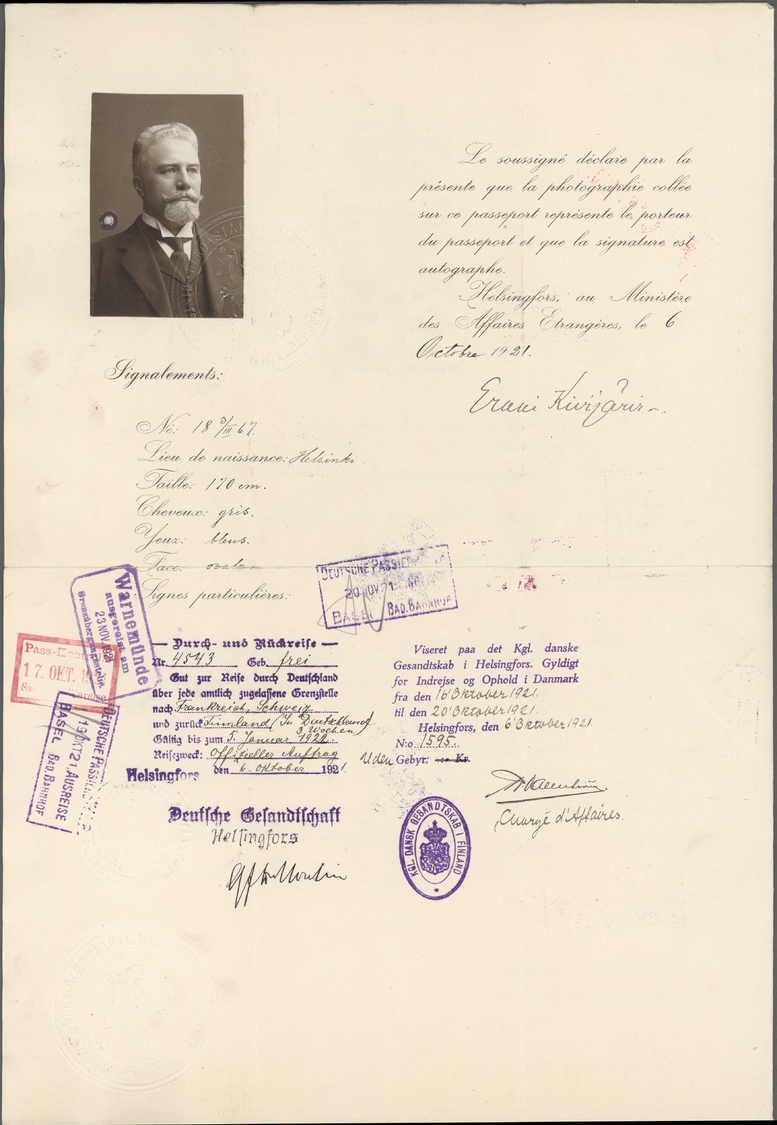 Le soussigné déclare par la
présente que la photographie collée
sur ce passeport représente le porteur
du passeport et que la signature est
autographe.
Helsingfors, au Ministère
des Affaires Etrangères, le 6
Octobre 1921.
Signalements:
Né: 18 3/III 67.
Lieu de naissance: Helsinki.
Taille: 170 cm.
Cheveux: gris.
Yeux: bleus.
Face: ovale
Signes particulières:
DEUTSCHE PASSTELLE
20 NOV. 21
BASEL BAD. BAHNHOF
Warnemünde
ausgereist am
23 NOV. 1921
Grenzübergangsstelle
Pass-Kontrolle
17. OKT.
DEUTSCHE PASSTELLE
19 OKT 21. AUSREISE
BASEL BAD. BAHNHOF
Durch- und Rückreise
Nr. 4543 Geb. frei
Gut zur Reise durch Deutschland
über jede amtlich zugelassene Grenzstelle
nach Frankreich, Schweiz
und zurück Finnland (In Deutschland
3 Wochen)
Gültig bis zum 5. Januar 1922.
Reisezweck: Offizieller Auftrag
Helsingfors den 6. Oktober 1921.
Deutsche Gesandtschaft
Helsingfors
Viseret paa det Kgl. danske
Gesandtskab i Helsingfors. Gyldigt
for Indrejse og Ophold i Danmark
fra den 16' Oktober 1921.
til den 20' Oktober 1921.
Helsingfors, den 6' Oktober 1921
N:o 1595.
Uden Gebyr: Kr.
Chargé d'Affaires.
KGL. DANSK GESANDTSKAB I FINLAND